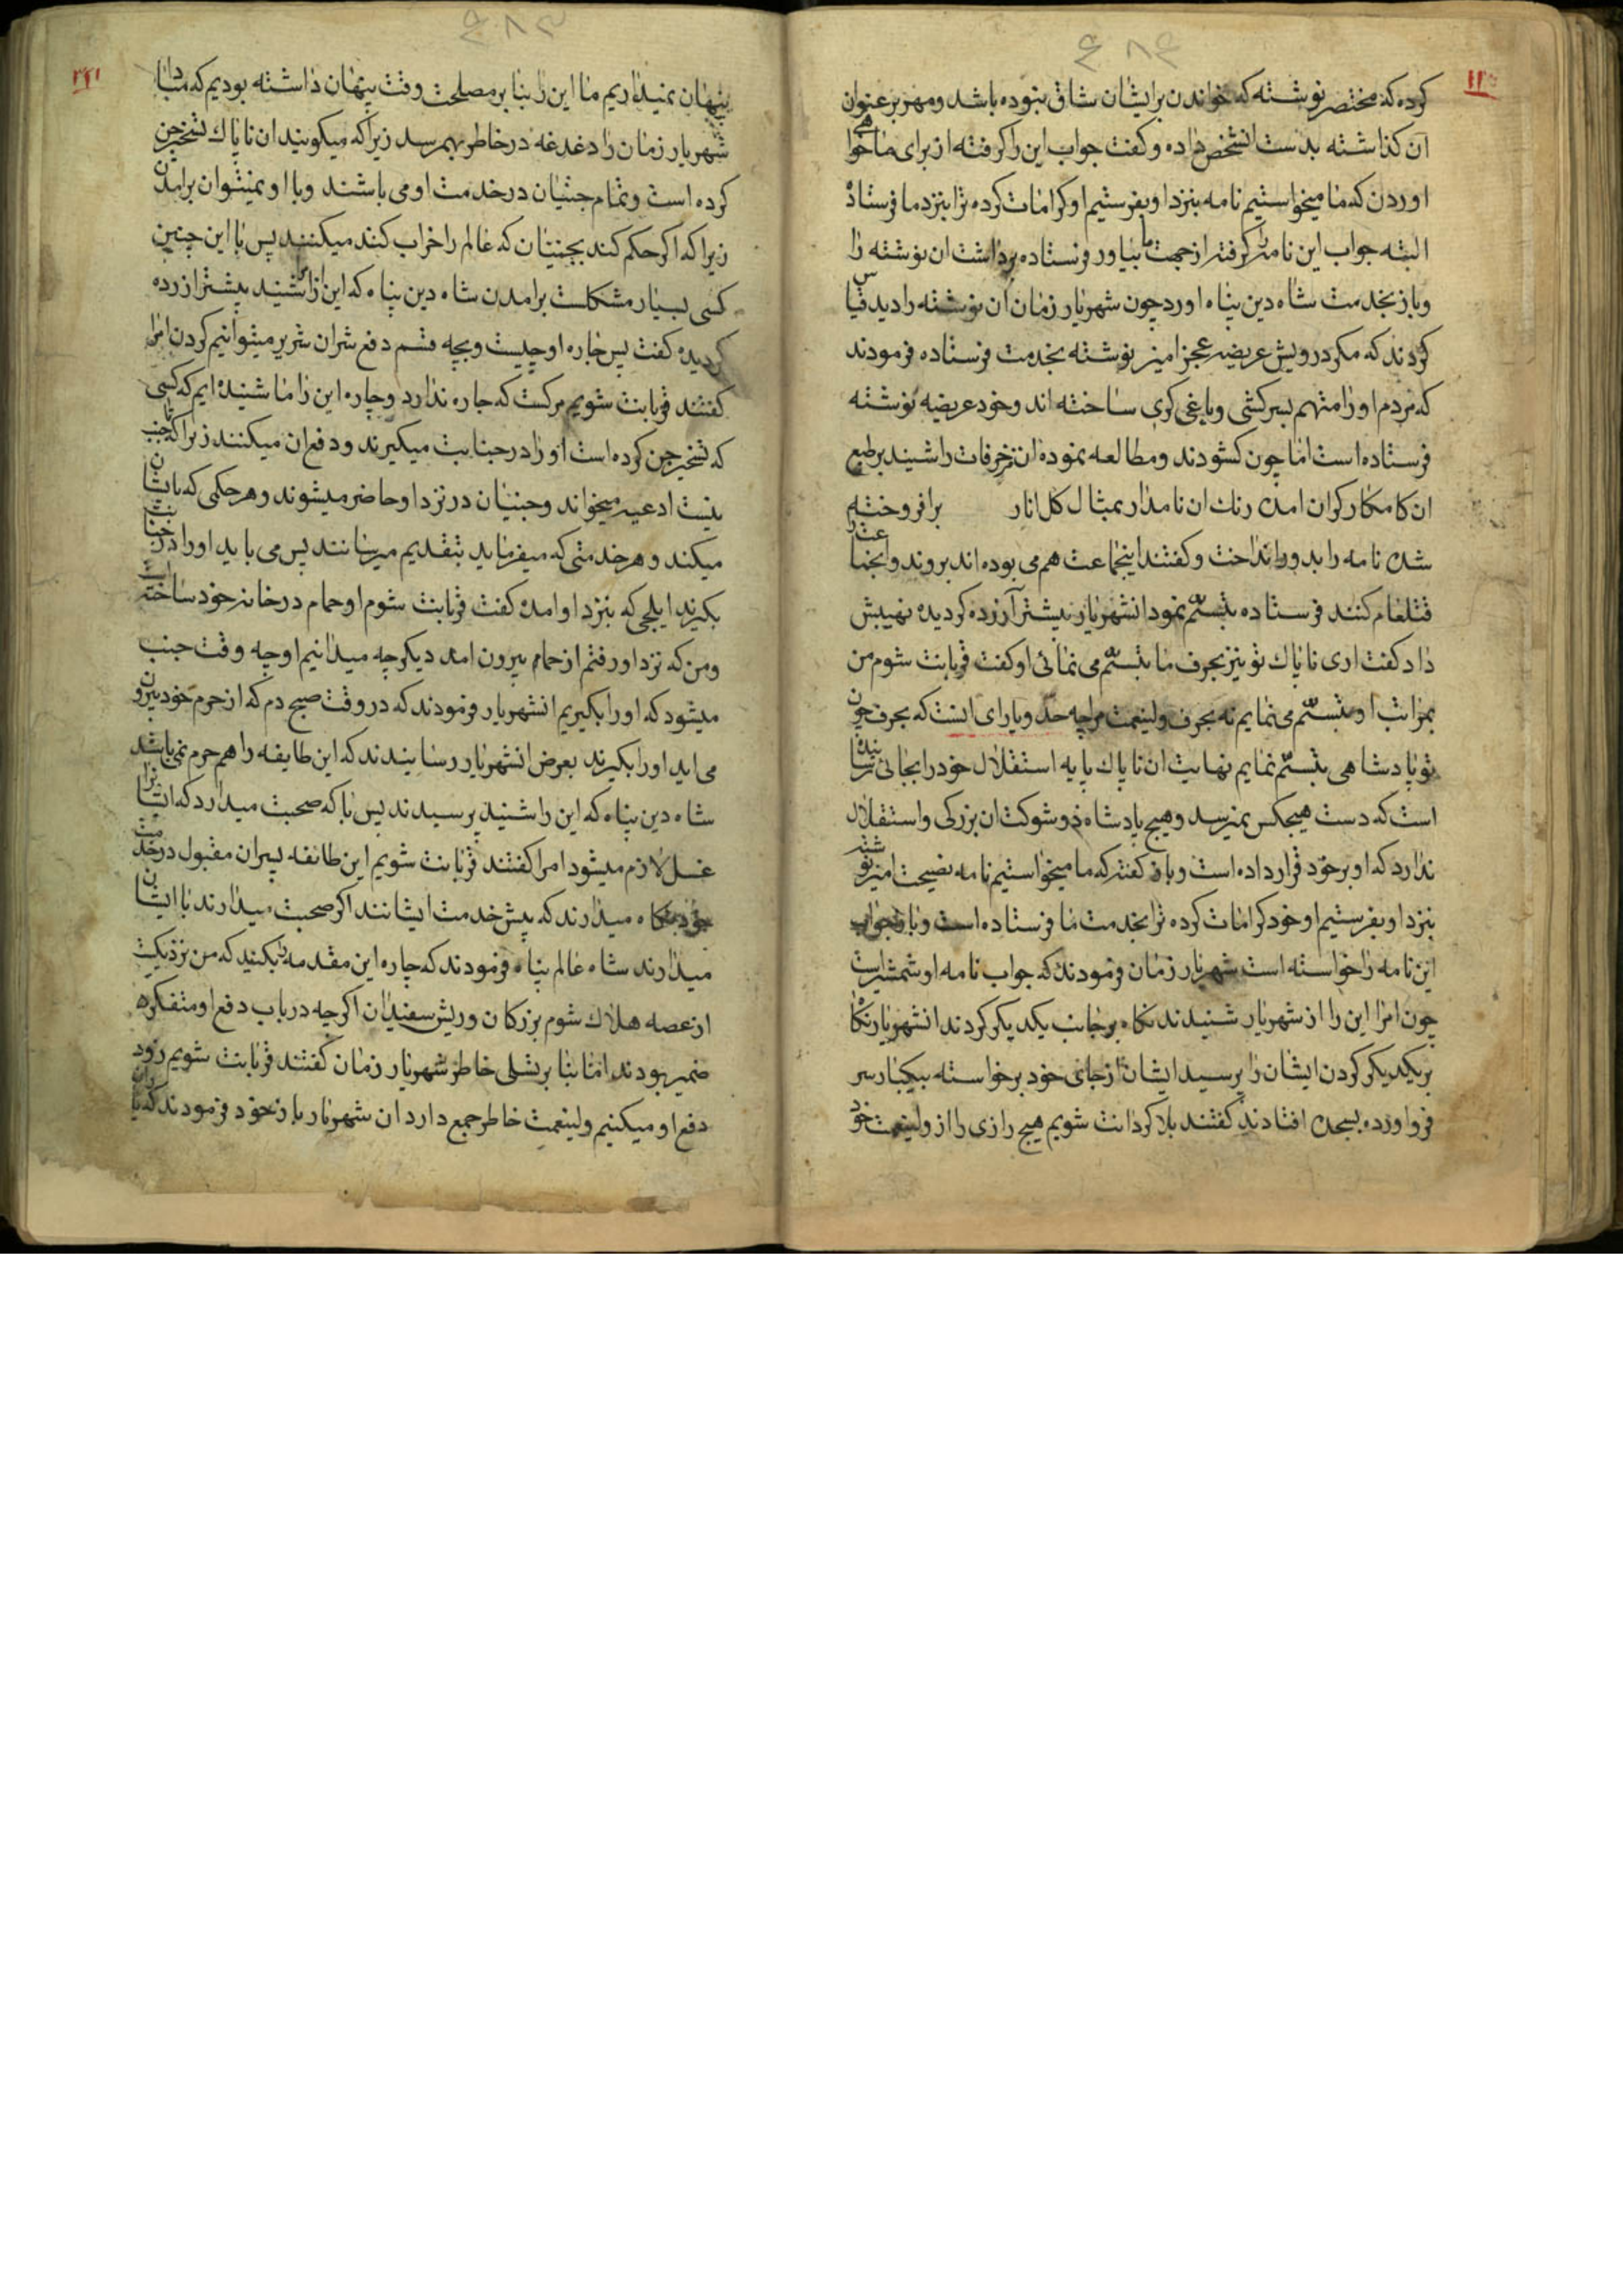 کرده که مختصر نوشته که خواندن بر ایشان شاق نبوده باشد و مهر بر عنوان
آن کذاشته بدست انشخص داده و کفت جواب این را کرفته از برای ما خواهی
اوردن که ما میخواستیم نامه بنزد او بفرستیم او کرامات کرده ترا بنزد ما فرستاده
البته جواب این نامه را کرفته از جهت ما بیاور فرستاده برداشت ان نوشته را
و باز بخدمت شاه دین پناه اورد چون شهریار زمان ان نوشته را دید قیاس
کردند که مکر درویش عریضه عجز امیز نوشته بخدمت فرستاده فرمودند
که مردم او را متهم بسرکشی و یاغی کری ساخته اند و خود عریضه نوشته
فرستاده است اما چون کشودند و مطالعه نموده ان مزخرفات را شنید بر طبع
ان کامکار کران امده رنك ان نامدار بمثال کل انار برافروخته
شده نامه را بدور انداخت و کفتند اینجماعت هم می بوده اند بروند و اینجماعت را
قتلعام کنند فرستاده تبسّم نمود انشهریار بیشتر آزرده کردیده نهیبش
داد کفت اری ناپاك تو نیز بحرف ما تبسّم می نمائی او کفت قربانت شوم من
بمزاتب او تبسّم می نمایم نه بحرف ولینعمت مرا چه حد و یارای انست که بحرف چون
تو پادشاهی تبسّم نمایم نهایت ان ناپاك پایه استقلال خود را بجائی رسانیده
است که دست هیچکس نمیرسد و هیچ پادشاه ذو شوکت ان بزرکی و استقلال
ندارد که او بر خود قرار داده است و باز کفته که ما میخواستیم نامه نصیحت امیز نوشته
بنزد او بفرستیم او خود کرامات کرده ترا بخدمت ما فرستاده است و باز جواب
این نامه را خواسته است شهریار زمان فرمودند که جواب نامه او شمشیر است
چون امرا این را از شهریار شنیدند نکاه بر جانب یکدیکر کردند انشهریار نکاه
بر یکدیکر کردن ایشان را پرسید ایشان از جای خود برخواسته بیکبار سر
فرو اورده بسجده افتادند کفتند بلا کردانت شویم هیچ رازی را از ولینعمت خود
پنهان نمیداریم ما این را بنا بر مصلحت وقت پنهان داشته بودیم که مبادا
شهریار زمان را دغدغه در خاطر بهم رسد زیرا که میکویند ان ناپاك تسخیر جن
کرده است و تمام جنیان در خدمت او می باشند و با او نمیتوان برامدن
زیرا که اکر حکم کند بجنیان که عالم را خراب کنند میکنند پس با این چنین
کسی بسیار مشکلست برامدن شاه دین پناه که این را شنید بیشتر ازرده
کردیده کفت پس چاره او چیست و بچه قسم دفع شر ان شریر میتوانیم کردن امرا
کفتند قربانت شویم مرکست که چاره ندارد و چاره این را ما شنیده ایم که کسی
که تسخیر جن کرده است او را در جنابت میکیرند و دفع ان میکنند زیرا که تا جنب
نیست ادعیه میخواند و جنیان در نزد او حاضر میشوند و هر حکمی که با ایشان
میکند و هر خدمتی که میفرماید بتقدیم میرسانند پس می باید او را در جنابت
بکیرند ایلچی که بنزد او امده کفت قربانت شوم او حمام در خانه خود ساخته است
و من که نزد او رفتم از حمام بیرون امد دیکر چه میدانیم او چه وقت جنب
میشود که او را بکیریم انشهریار فرمودند که در وقت صبح دم که از حرم خود بیرون
می اید او را بکیرند بعرض انشهریار رسانیدند که این طایفه را هم حرم نمی باشد
شاه دین پناه که این را شنید پرسیدند پس با که صحبت میدارد که ایشانرا
غسل لازم میشود امرا کفتند قربانت شویم این طائفه پسران مقبول در خدمت
خود نکاه میدارند که پیش خدمت ایشانند اکر صحبت میدارند با ایشان
میدارند شاه عالم پناه فرمودند که چاره این مقدمه را بکنید که من نزدیکست
از غصه هلاك شوم بزرکان و ریش سفیدان اکرچه در باب دفع او متفکره
ضمیر بودند اما بنا بر تسلی خاطر شهریار زمان کفتند قربانت شویم زود
دفع او میکنیم ولینعمت خاطر جمع دارد ان شهریار باز خود فرمودند که یاران